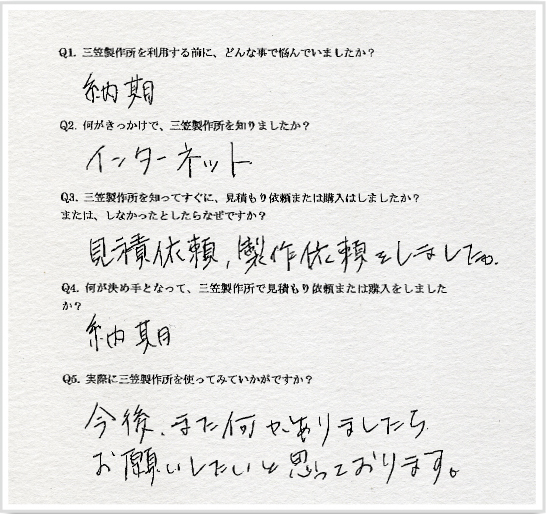 Q1. 三笠製作所を利用する前に、どんな事で悩んでいましたか？
納期
Q2. 何がきっかけで、三笠製作所を知りましたか？
インターネット
Q3. 三笠製作所を知ってすぐに、見積もり依頼または購入はしましたか？
または、しなかったとしたらなぜですか？
見積依頼，製作依頼をしました。
Q4. 何が決め手となって、三笠製作所で見積もり依頼または購入をしました
か？
納期
Q5. 実際に三笠製作所を使ってみていかがですか？
今後、また何かありましたら
お願いしたいと思っております。